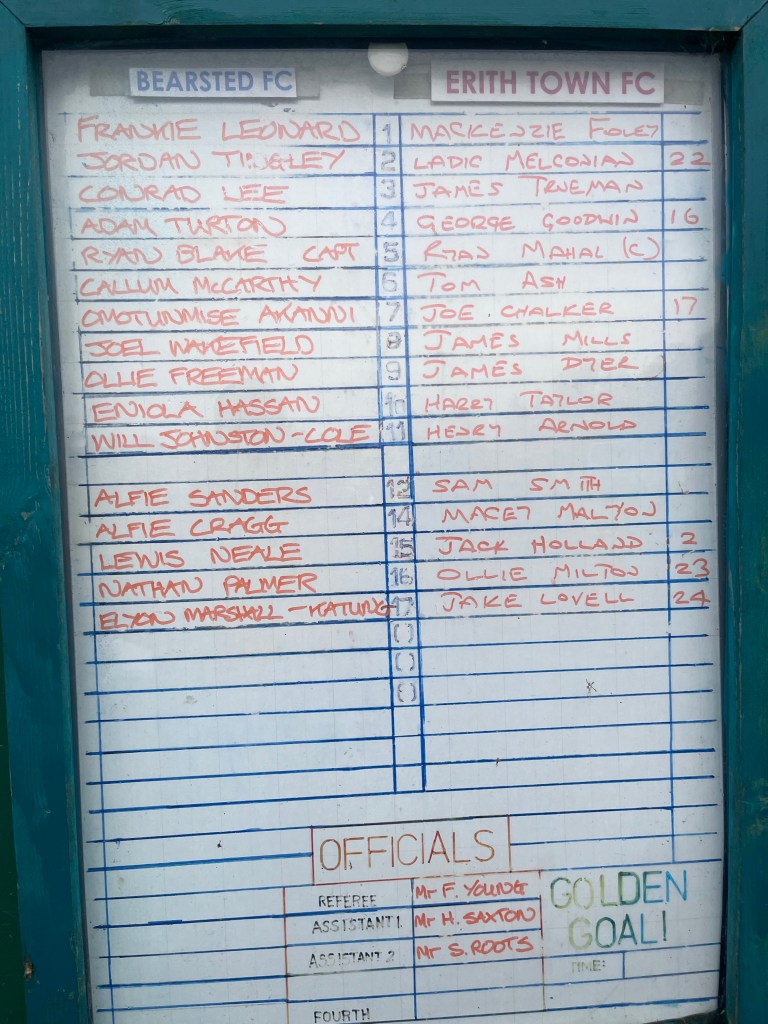 BEARSTED FC ERITH TOWN FC
FRANKIE LEONARD 1 MACKENZIE FOLEY
JORDAN TINGLEY 2 LADIC MELCONIAN 22
CONRAD LEE 3 JAMES TRUEMAN
ADAM TURTON 4 GEORGE GOODWIN 16
RYAN BLAKE CAPT 5 RYAN MAHAL (C)
CALLUM McCARTHY 6 TOM ASH
OMOTUNMISE AKANNI 7 JOE CHALKER 17
JOEL WAKEFIELD 8 JAMES MILLS
OLLIE FREEMAN 9 JAMES DYER
ENIOLA HASSAN 10 HARRY TAYLOR
WILL JOHNSTON-COLE 11 HENRY ARNOLD
ALFIE SANDERS 12 SAM SMITH
ALFIE CRAGG 14 MACEY MALYON
LEWIS NEALE 15 JACK HOLLAND 2
NATHAN PALMER 16 OLLIE MILTON 23
ELYON MARSHALL-KATUNG 17 JAKE LOVELL 24
( )
( )
( )
OFFICIALS
REFEREE Mr F. YOUNG
ASSISTANT 1. Mr H. SAXTON
ASSISTANT 2 Mr S. ROOTS
FOURTH
GOLDEN
GOAL!
TIME: